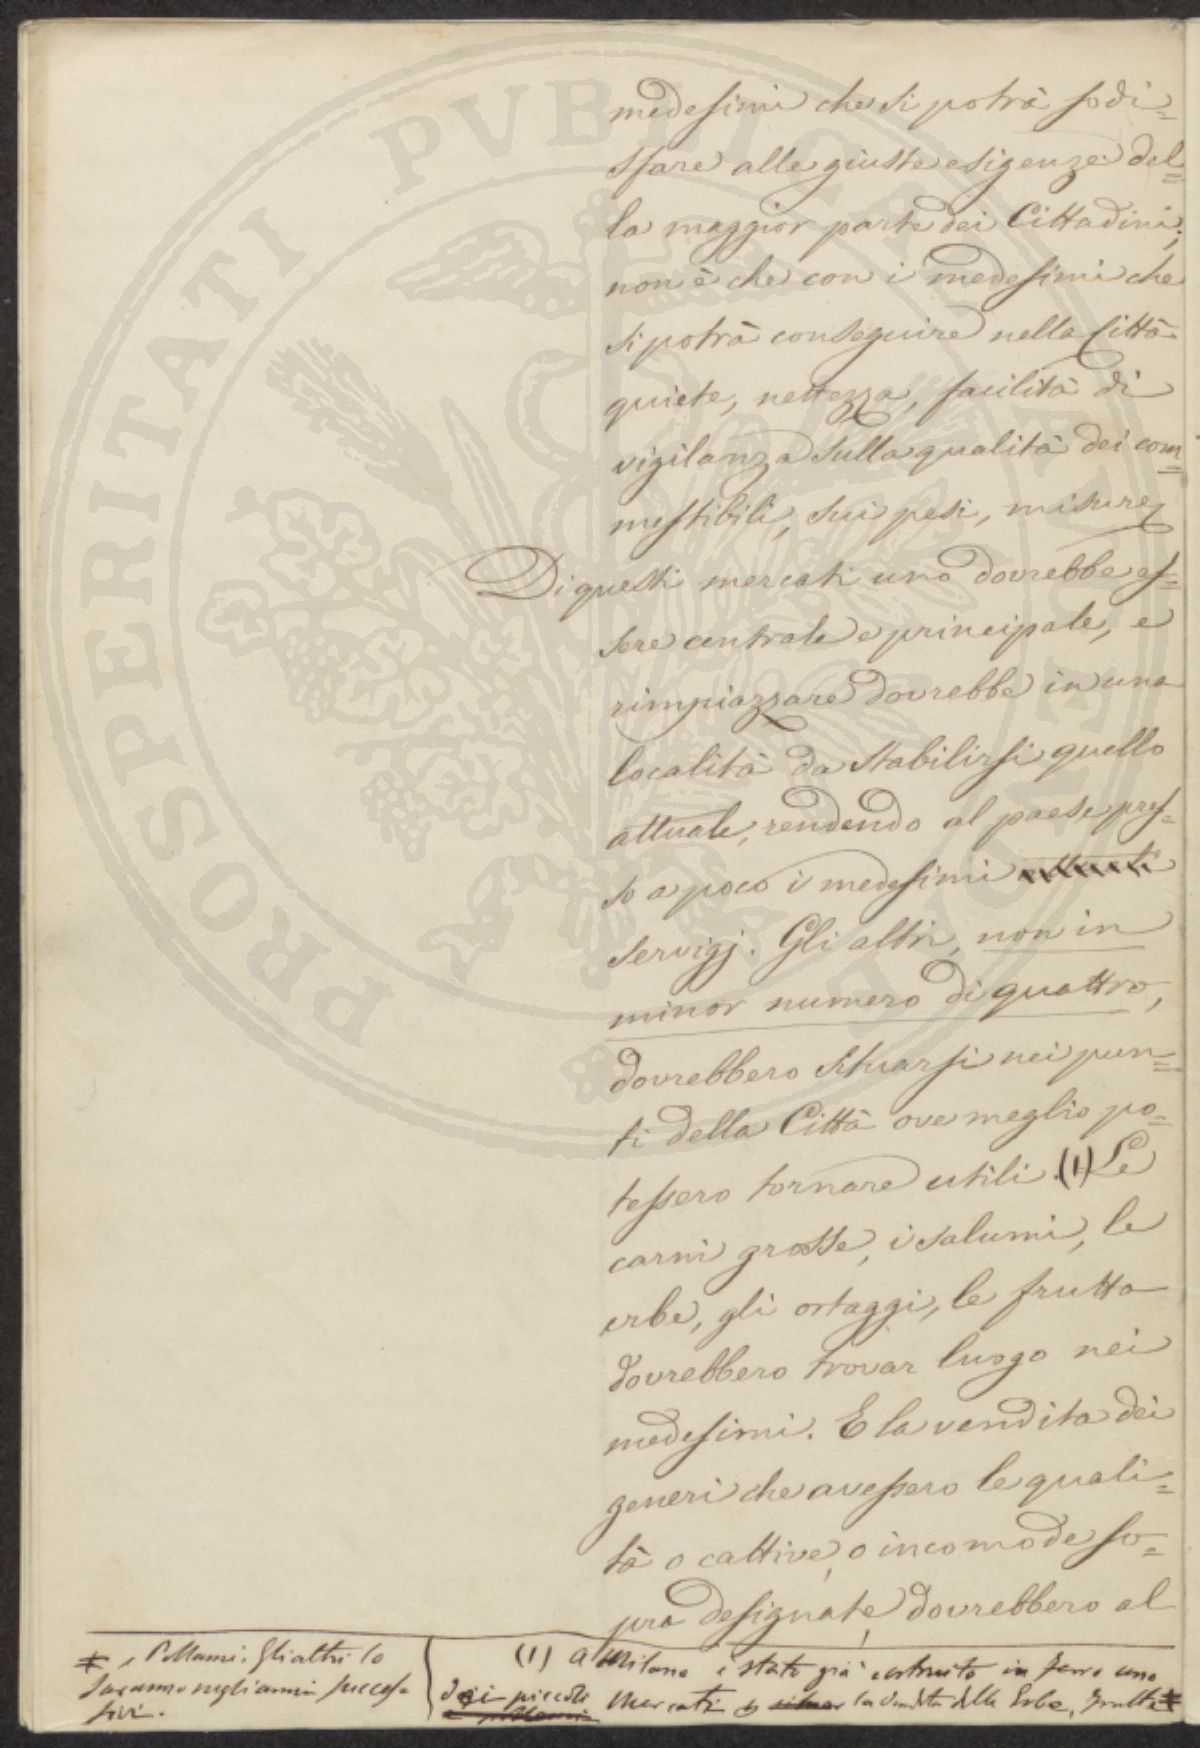 medesimi che si potrà sodi=
sfare alle giuste esigenze del=
la maggior parte dei Cittadini;
non è che con i medesimi che
si potrà conseguire nella Città
quiete, nettezza, facilità di
vigilanza sulla qualità dei com=
mestibili, sui pesi, misure
Di questi mercati uno dovrebbe es=
sere centrale e principale, e
rimpiazzare dovrebbe in una
località da stabilirsi quello
attuale, rendendo al paese pres=
so a poco i medesimi
servigj. Gli altri, non in
minor numero di quattro,
dovrebbero situarsi nei pun=
ti della Città ove meglio po=
tessero tornare utili. (1) Le
carni grosse, i salumi, le
erbe, gli ortaggi, le frutta
dovrebbero trovar luogo nei
medesimi. E la vendita dei
generi che avessero le quali=
tà o cattive, o incomode so=
pra designate, dovrebbero al
(1) A Milano è stato già costruito in ferro uno
dei piccoli Mercati la vendita delle Erbe, Frutta
, Pollami. Gli altri lo
saranno negli anni succes=
sivi.
PROSPERITATI PVBLICAE